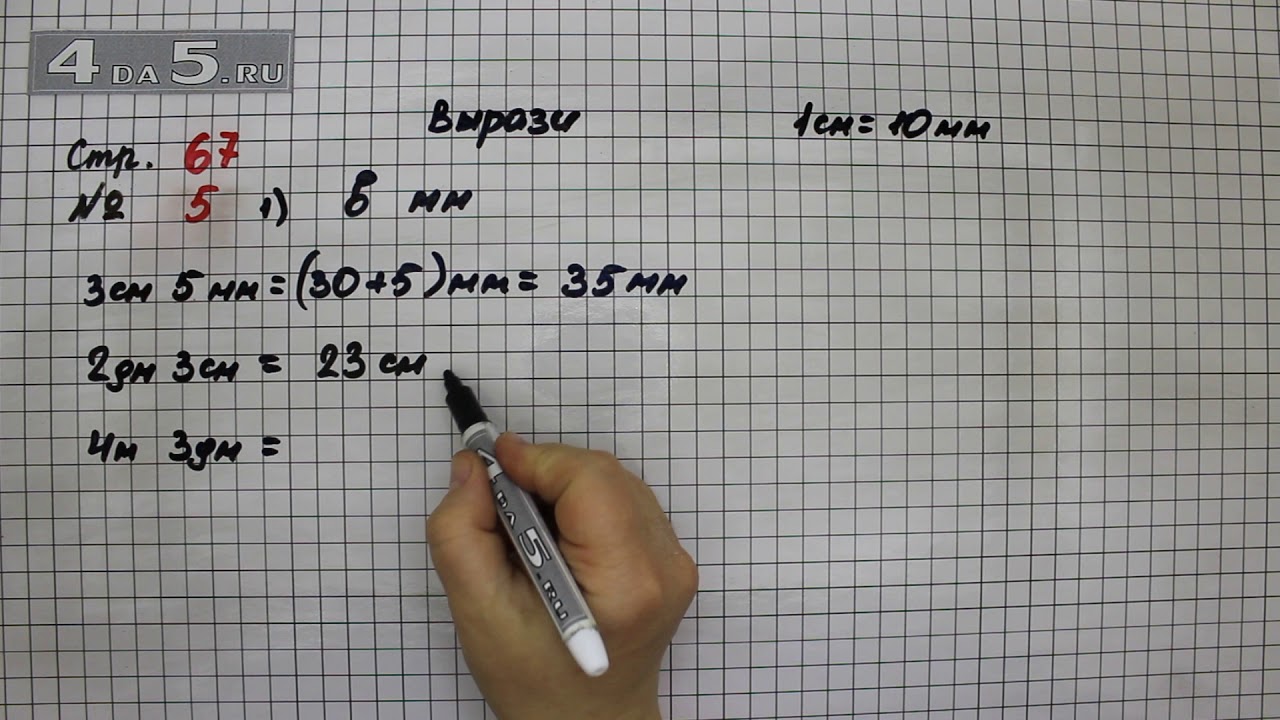 4DA5.RU
Вырази
1см = 10мм
Стр. 67
№ 5 1) в мм
3см 5мм = (30+5)мм = 35мм
2дм 3см = 23 см
4м 3дм =
4 ДВА 5.RU